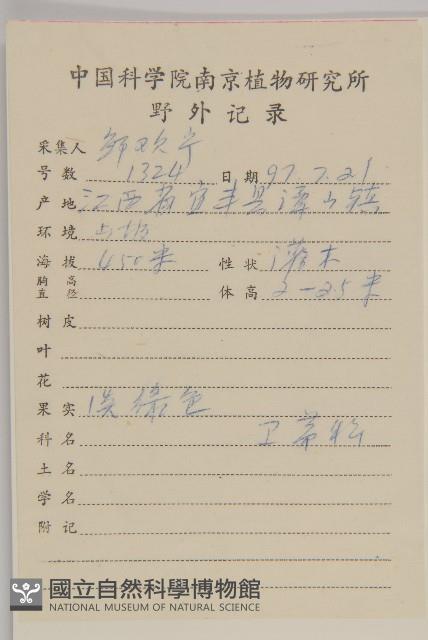 中国科学院南京植物研究所
野外记录
采集人
号数 1324 日期 97.7.21
产地 江西省宜丰县潭山镇
环境 山坡
海拔 450米 性状 灌木
胸高直径 体高 2-2.5米
树皮
叶
花
果实 淡绿色
科名 卫茅科
土名
学名
附记
國立自然科學博物館
NATIONAL MUSEUM OF NATURAL SCIENCE